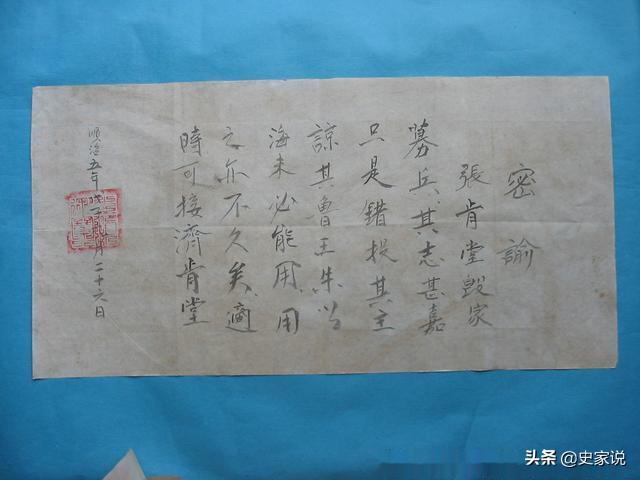 密諭
張肯堂毀家
募兵其志甚嘉
只是錯投其主
諒其魯王朱以
海未必能用用
之亦不久矣適
時可接濟肯堂
順治五年戊子月二十六日
頭条 @史家说